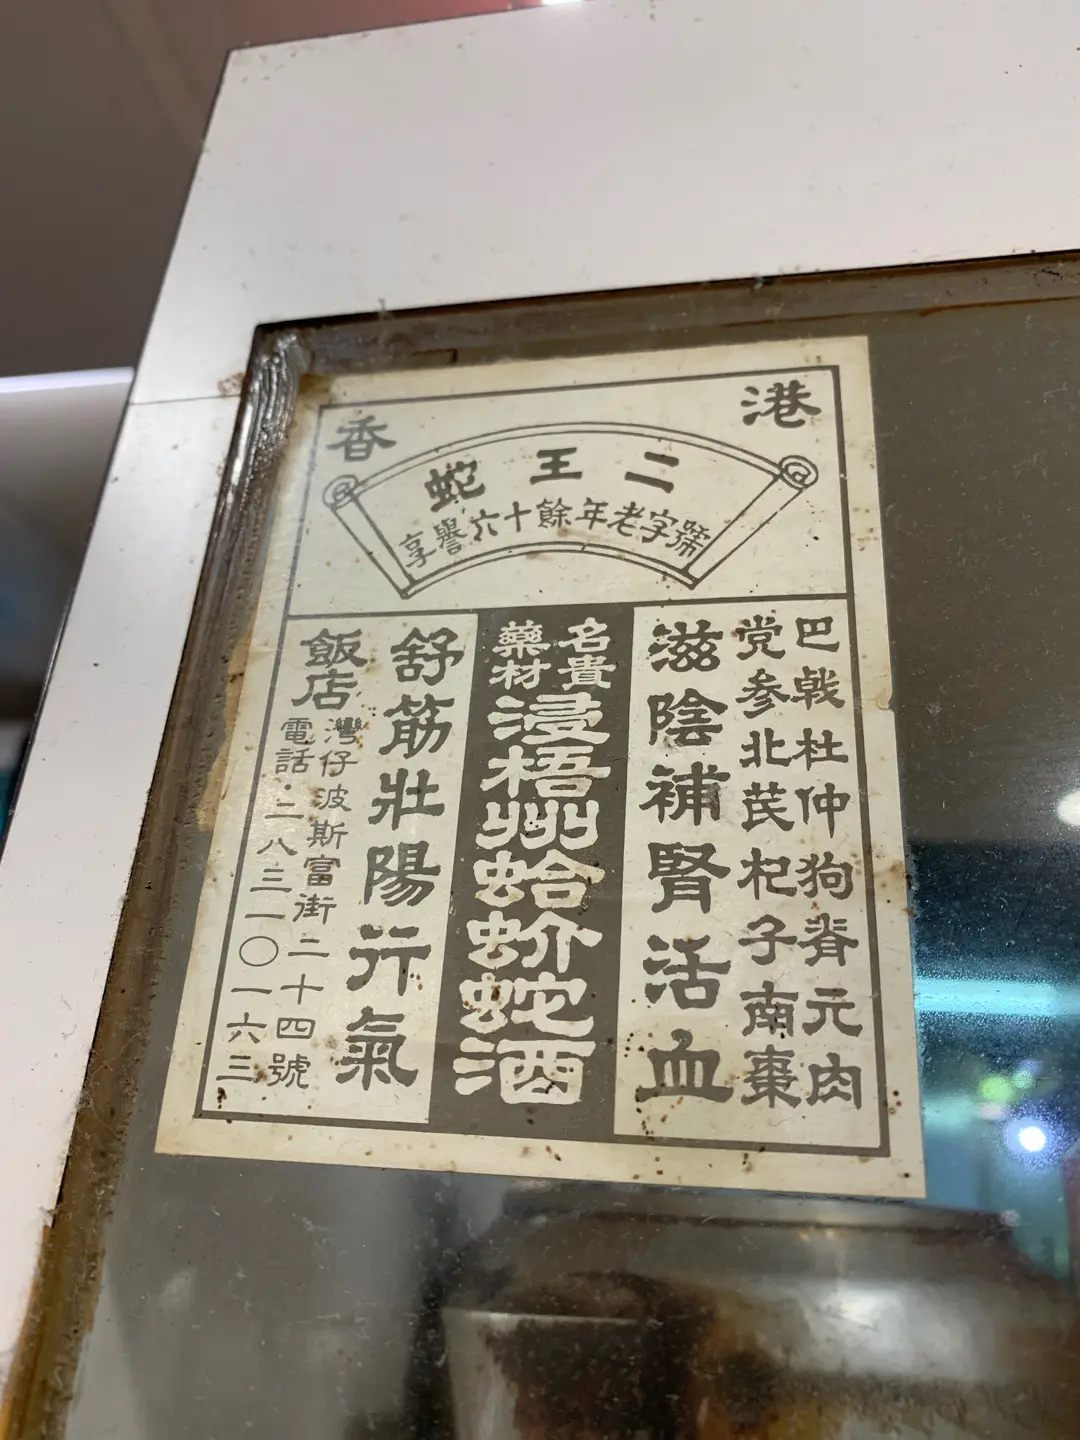 香港
蛇王二
享譽六十餘年老字號
巴戟杜仲狗脊元肉
党参北芪杞子南棗
滋陰補腎活血
名貴
藥材
浸梧州蛤蚧蛇酒
舒筋壯陽行氣
飯店
灣仔波斯富街二十四號
電話·二八三一〇一六三